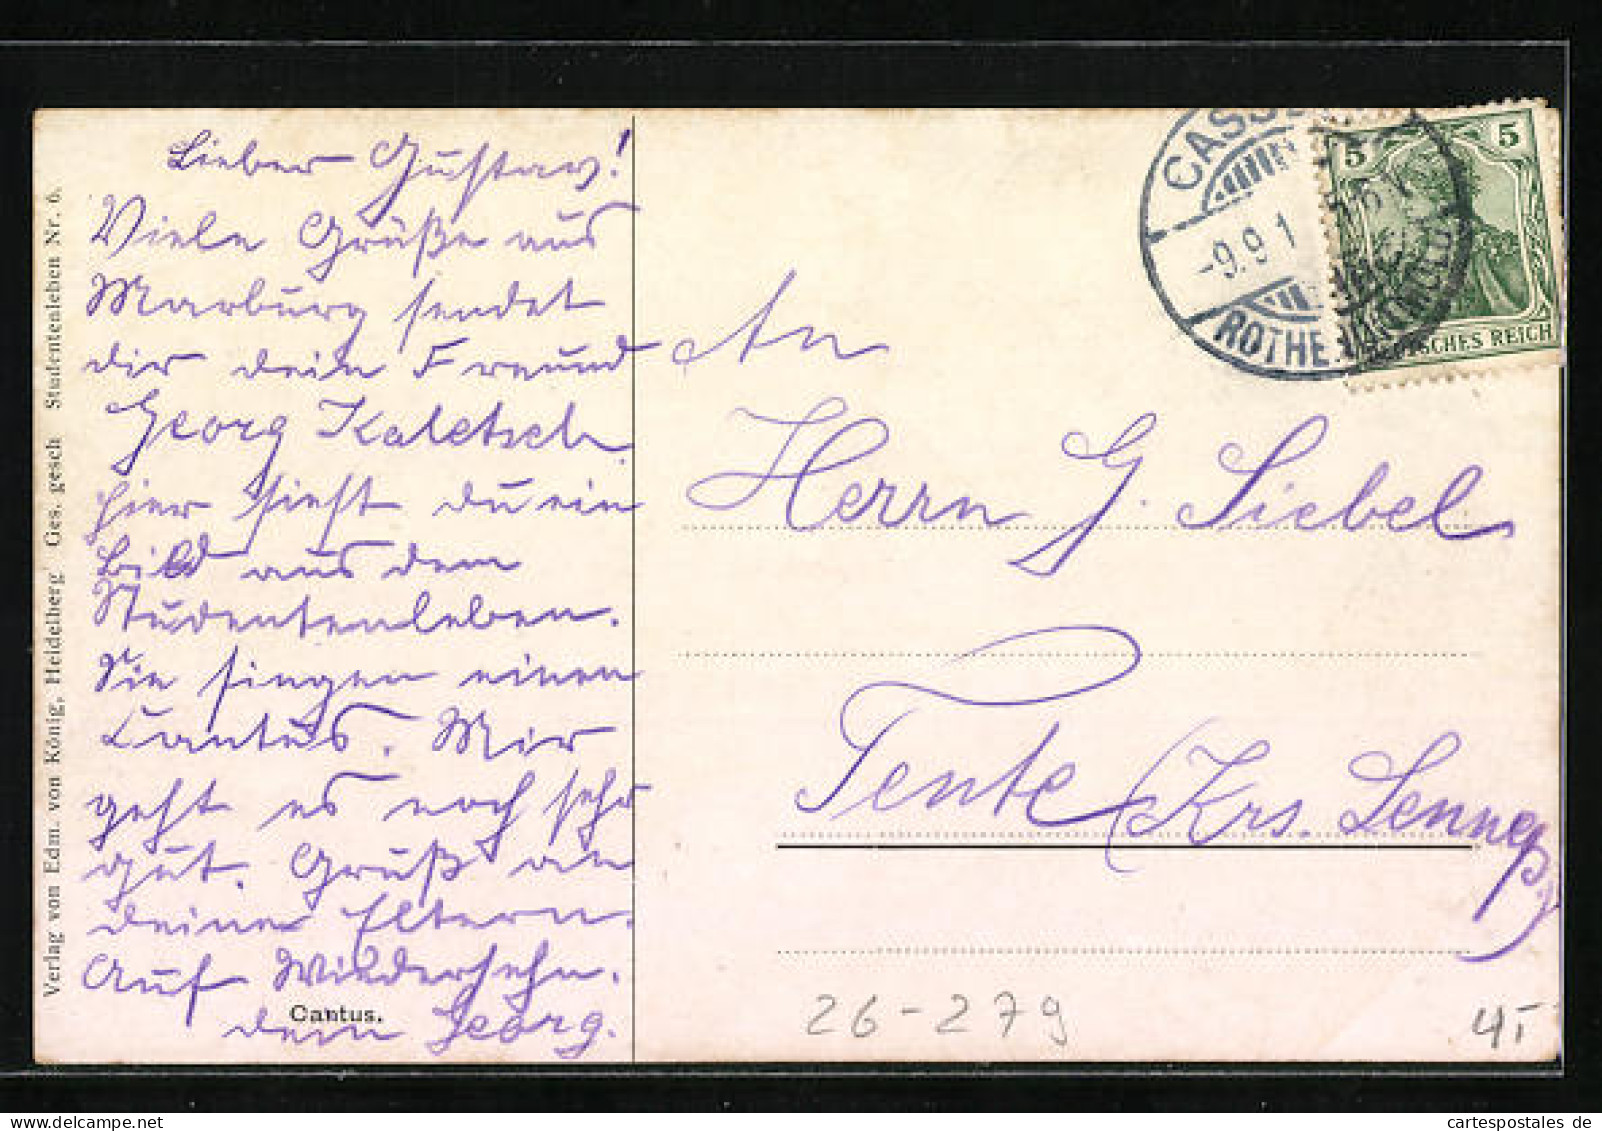 Lieber Gustav!
Viele Grüße aus
Marburg sendet
dir dein Freund
Georg Kaletsch.
hier siehst du ein
Bild aus dem
Studentenleben.
Sie singen einen
Cantus. Mir
geht es noch sehr
gut. Gruß an
deine Eltern.
Auf Wiedersehn.
dein Georg.
Cantus.
Verlag von Edm. von König, Heidelberg Ges. gesch Studentenleben Nr. 6.
An
Herrn G. Siebel
Tente (Krs. Lennep)
CASSEL
-9.9.1
ROTHE
5 5
DEUTSCHES REICH
26-279
cartespostales.de